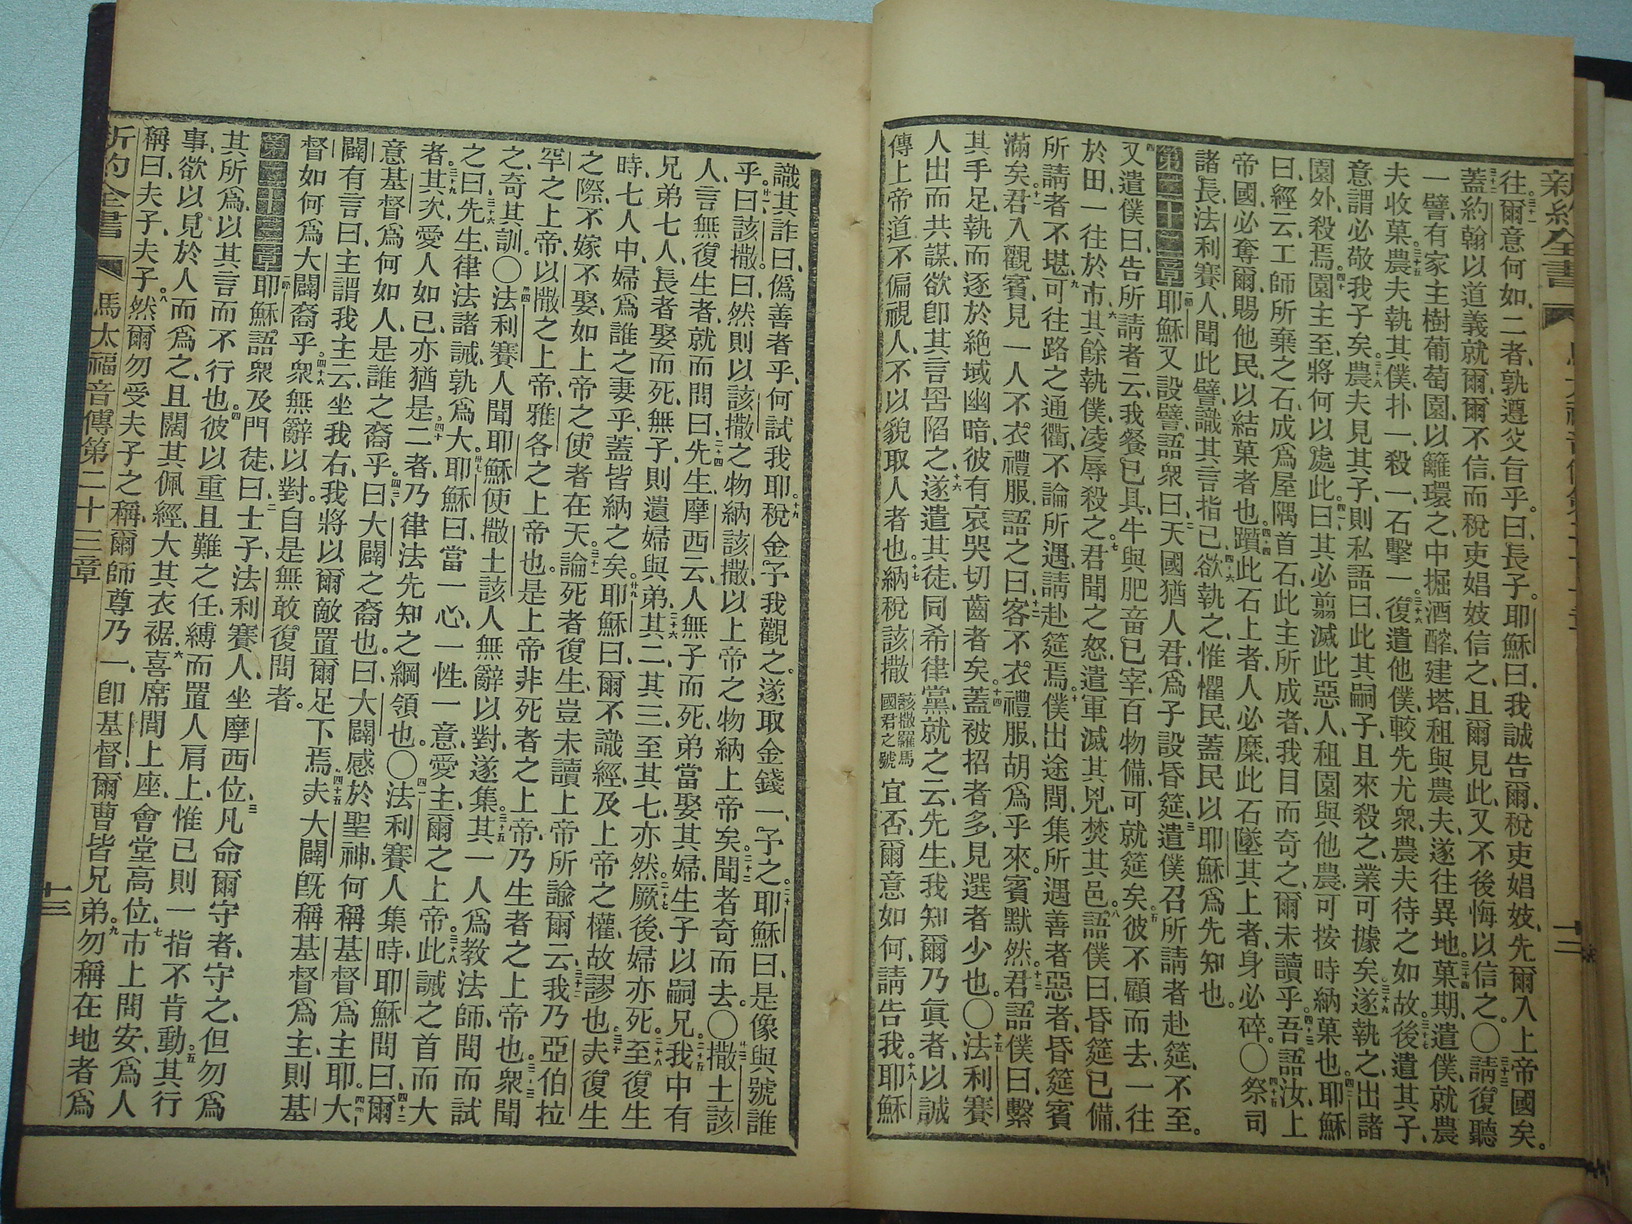 新約全書
往爾意何如、二者孰遵父旨乎、曰、長子、耶穌曰、我誠告爾、稅吏娼妓、先爾入上帝國矣。
蓋約翰以道義就爾、爾不信、而稅吏娼妓信之、且爾見此、又不後悔以信之。〇請復聽
一譬、有家主樹葡萄園、以籬環之、中掘酒醡、建塔、租與農夫、遂往異地、菓期、遣僕就農
夫收菓、農夫執其僕、扑一、殺一、石擊一、復遣他僕、較先尤衆、農夫待之如故、後遣其子、
意謂必敬我子矣、農夫見其子、則私語曰、此其嗣子、且來殺之、業可據矣、遂執之、出諸
園外、殺焉、園主至、將何以處此、曰、其必翦滅此惡人、租園與他農、可按時納菓也、耶穌
曰、經云、工師所棄之石、成爲屋隅首石、此主所成者、我目而奇之、爾未讀乎、吾語汝、上
帝國必奪爾賜他民、以結菓者也、躓此石上者、人必糜、此石墜其上者、身必碎。〇祭司
諸長、法利賽人聞此譬、識其言指己、欲執之、惟懼民、蓋民以耶穌爲先知也。
第二十二章 耶穌又設譬語衆曰、天國猶人君、爲子設昏筵、遣僕召所請者赴筵、不至。
又遣僕曰、告所請者云、我餐已具、牛與肥畜已宰、百物備、可就筵矣、彼不顧而去、一往
於田、一往於市、其餘執僕、凌辱殺之、君聞之怒、遣軍滅其兇、焚其邑、語僕曰、昏筵已備、
所請者不堪、可往路之通衢、不論所遇、請赴筵焉、僕出途間、集所遇善者惡者、昏筵賓
滿矣、君入觀賓、見一人不衣禮服、語之曰、客不衣禮服、胡爲乎來、賓默然、君語僕曰、繫
其手足、執而逐於絶域幽暗、彼有哀哭切齒者矣、蓋被招者多、見選者少也。〇法利賽
人出而共謀、欲卽其言罟陷之、遂遣其徒、同希律黨、就之云、先生、我知爾乃眞者、以誠
傳上帝道、不偏視人、不以貌取人者也、納稅該撒 該撒羅馬國君之號 宜否、爾意如何、請告我、耶穌
識其詐曰、僞善者乎、何試我耶、稅金予我觀之、遂取金錢一予之、耶穌曰、是像與號誰
乎、曰、該撒。曰、然則以該撒之物納該撒、以上帝之物納上帝矣、聞者奇而去。〇撒土該
人、言無復生者、就而問曰、先生、摩西云、人無子而死、弟當娶其婦、生子以嗣兄、我中有
兄弟七人、長者娶而死、無子、則遺婦與弟、其二其三、至其七亦然、厥後婦亦死、至復生
時、七人中婦爲誰之妻乎、蓋皆納之矣、耶穌曰、爾不識經、及上帝之權、故謬也、夫復生
之際、不嫁不娶、如上帝之使者在天、論死者復生、豈未讀上帝所諭爾云、我乃亞伯拉
罕之上帝、以撒之上帝、雅各之上帝也、是上帝非死者之上帝、乃生者之上帝也、衆聞
之、奇其訓。〇法利賽人聞耶穌使撒土該人無辭以對、遂集、其一人爲敎法師、問而試
之曰、先生、律法諸誡孰爲大、耶穌曰、當一心、一性、一意、愛主爾之上帝、此誡之首而大
者、其次、愛人如己、亦猶是、二者乃律法先知之綱領也。〇法利賽人集時、耶穌問曰、爾
意基督爲何如人、是誰之裔乎、曰、大闢之裔也、曰、大闢感於聖神、何稱基督爲主耶、大
闢有言曰、主謂我主云、坐我右、我將以爾敵置爾足下焉、夫大闢旣稱基督爲主、則基
督如何爲大闢裔乎、衆無辭以對、自是無敢復問者。
第二十三章 耶穌語衆及門徒曰、士子、法利賽人、坐摩西位、凡命爾守者、守之、但勿爲
其所爲、以其言而不行也、彼以重且難之任、縛而置人肩上、惟己則一指不肯動、其行
事、欲以見於人而爲之、且闊其佩經、大其衣裾、喜席間上座、會堂高位、市上問安、爲人
稱曰、夫子、夫子、然爾勿受夫子之稱、爾師尊乃一、卽基督、爾曹皆兄弟、勿稱在地者爲
新約全書 馬太福音傳第二十三章 十三